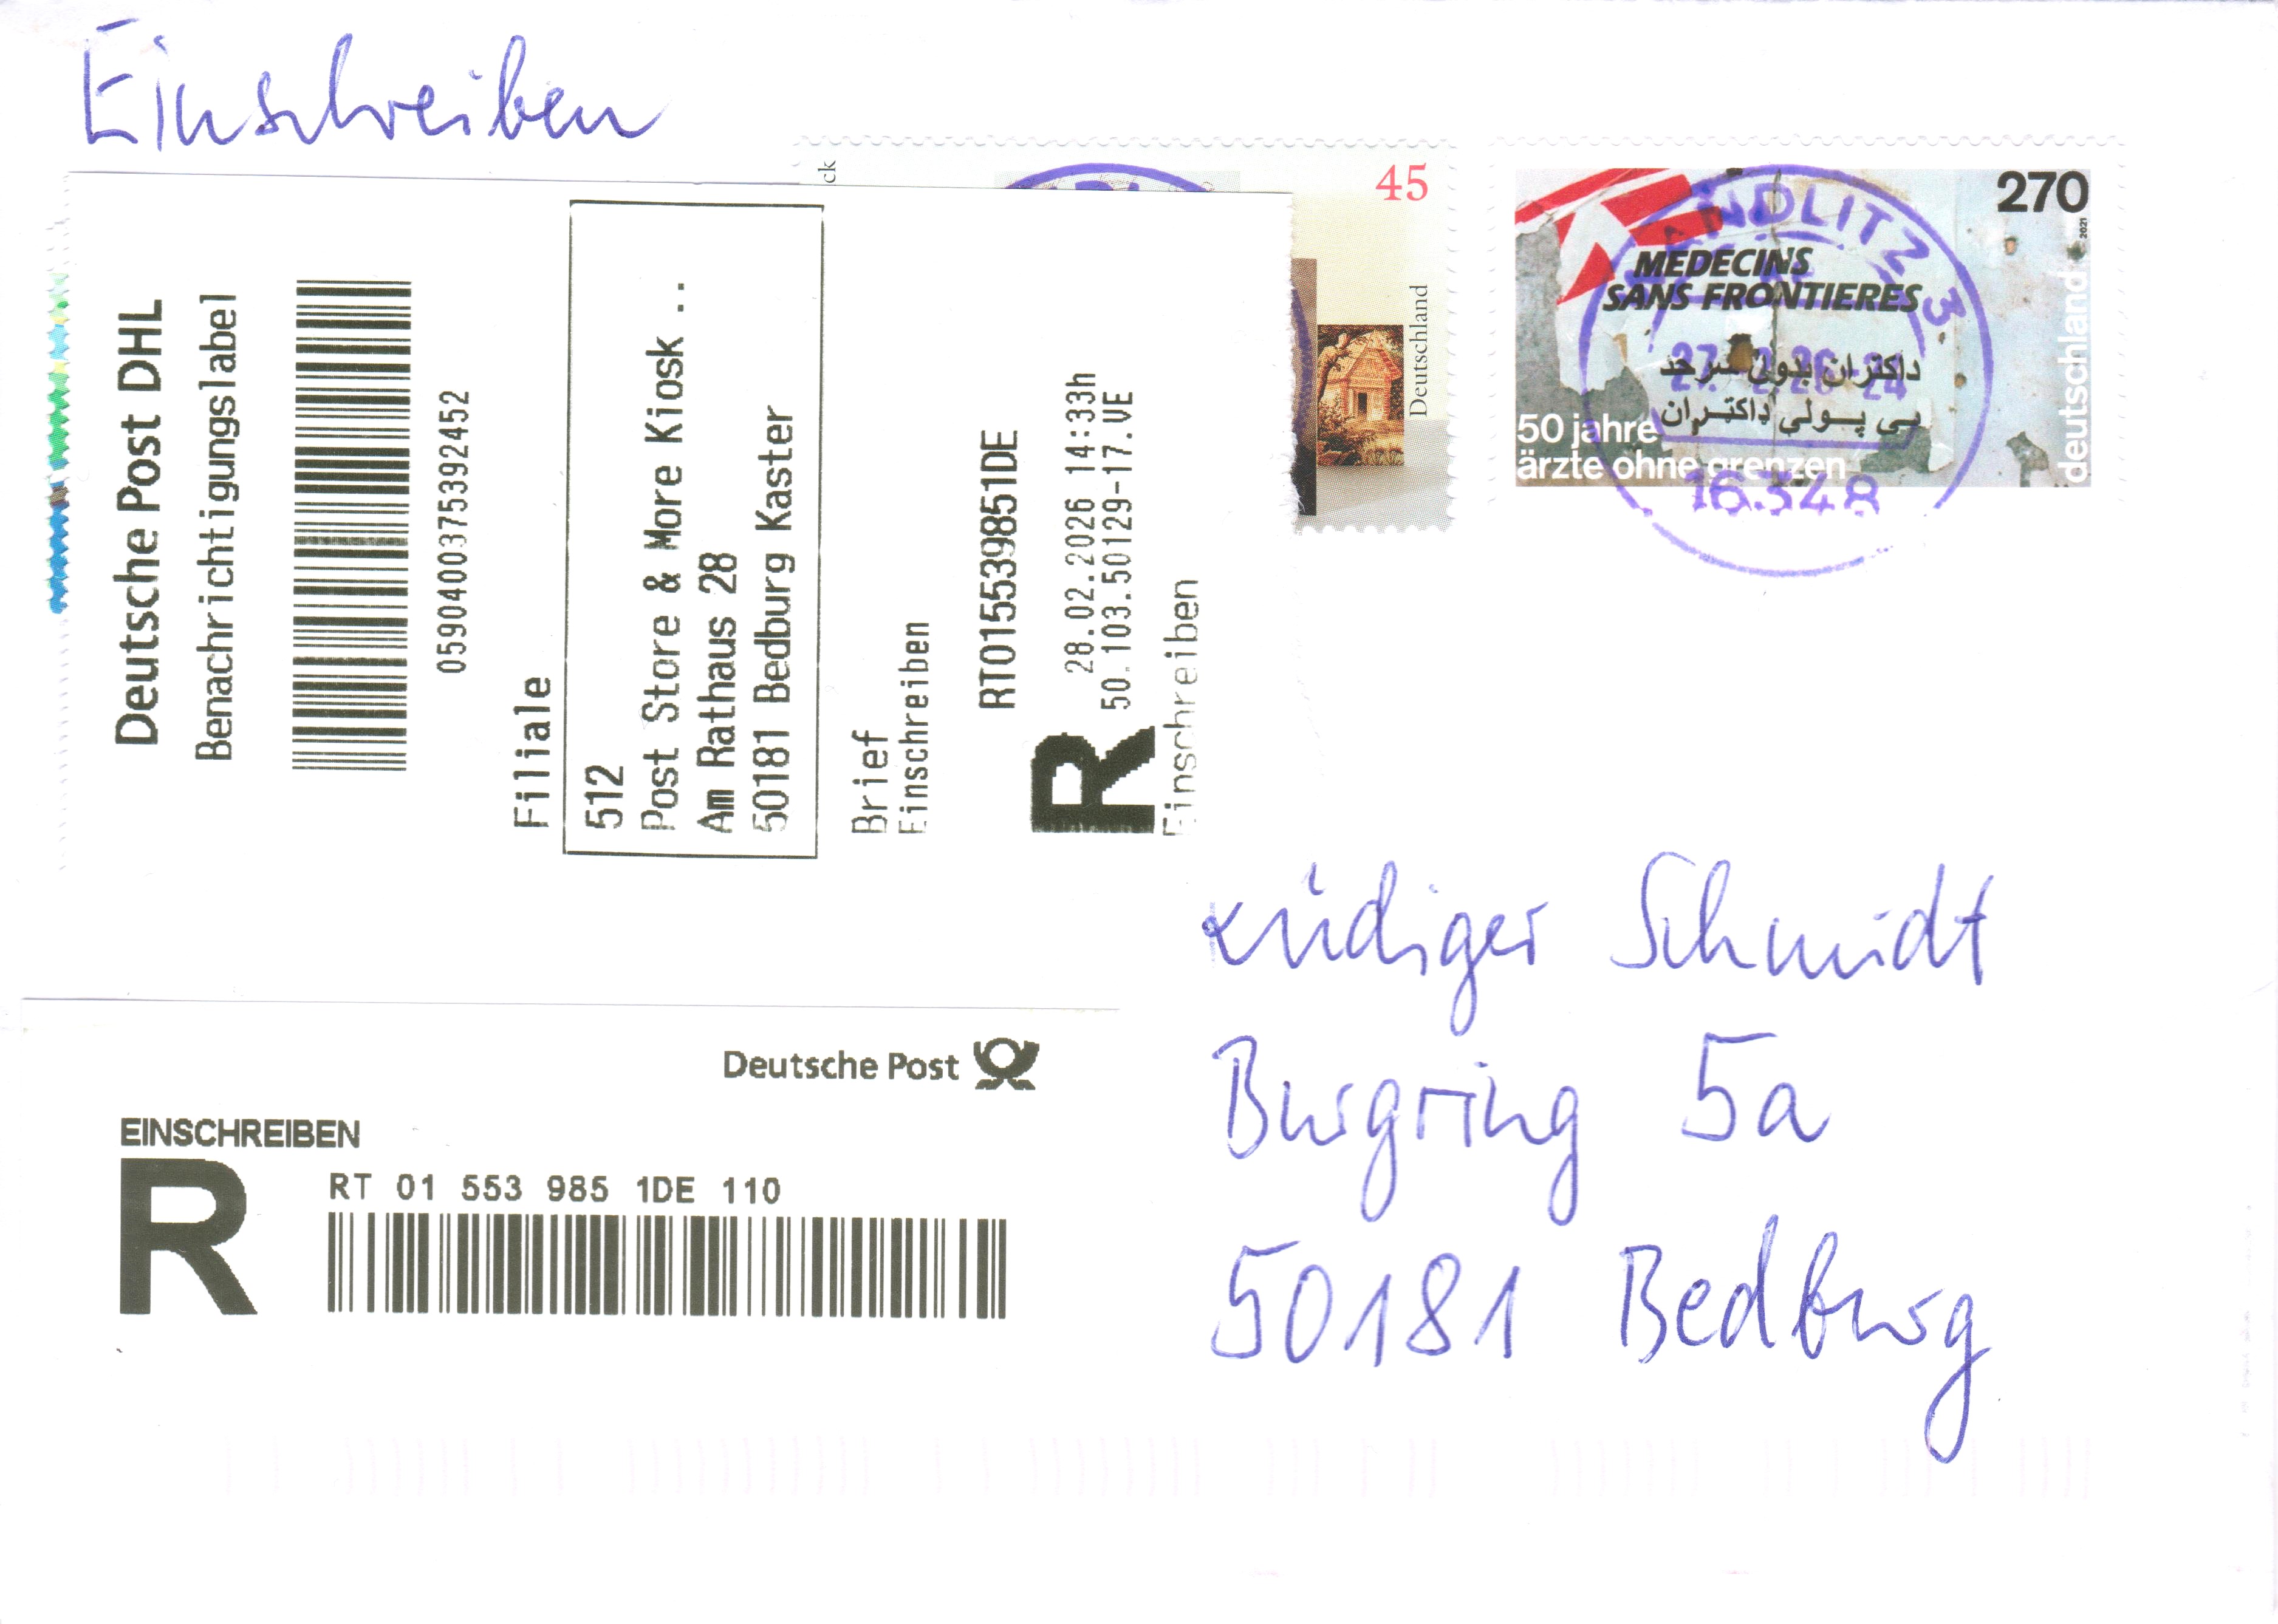 Einschreiben
ck
45
Deutschland
270
2021
deutschland
MEDECINS
SANS FRONTIERES
داکتران بدون سرحد
بی پولی داکتران
50 jahre
ärzte ohne grenzen
ANDLITZ 3
16348
Deutsche Post DHL
Benachrichtigungslabel
0590400375392452
Filiale
512
Post Store & More Kiosk ..
Am Rathaus 28
50181 Bedburg Kaster
Brief
Einschreiben
RT015539851DE
28.02.2026 14:33h
50.103.50129-17.VE
R
Einschreiben
Rüdiger Schmidt
Burgring 5a
50181 Bedburg
Deutsche Post
EINSCHREIBEN
R
RT 01 553 985 1DE 110